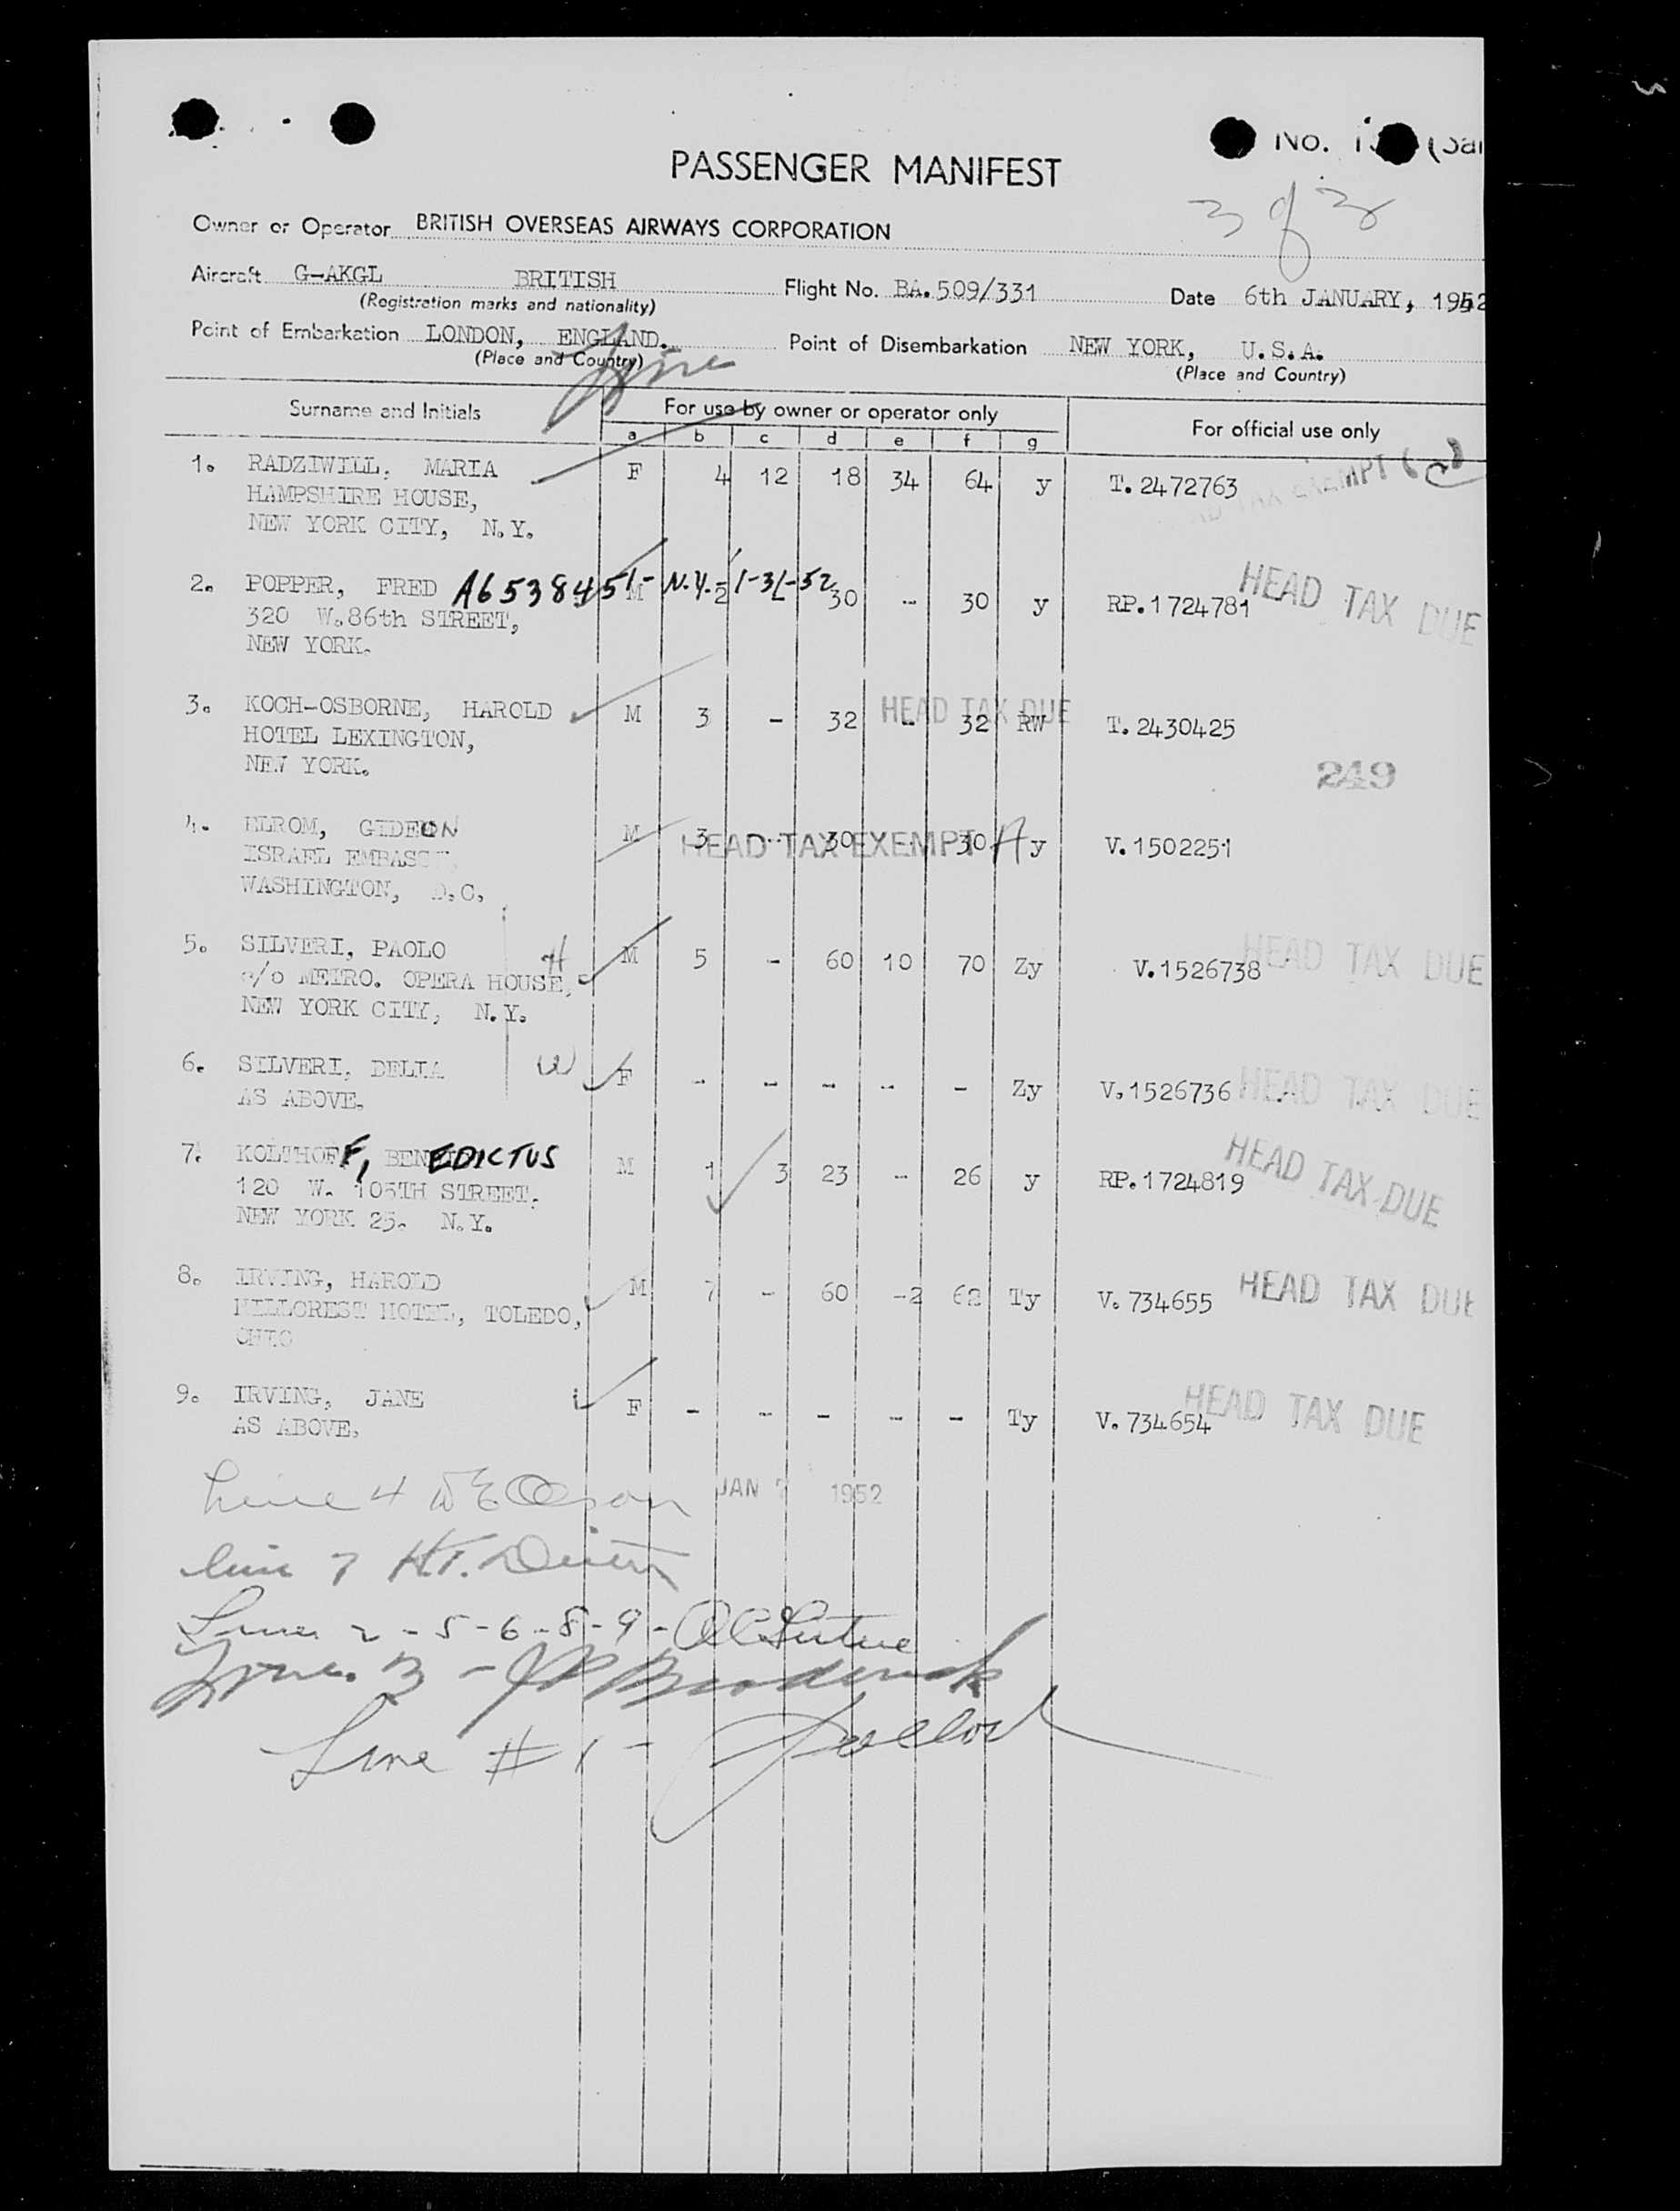 No.
PASSENGER MANIFEST
3 of 3
Owner or Operator BRITISH OVERSEAS AIRWAYS CORPORATION
Aircraft G-AKGL BRITISH Flight No. BA.509/331 Date 6th JANUARY, 1952
(Registration marks and nationality)
Point of Embarkation LONDON, ENGLAND. Point of Disembarkation NEW YORK, U.S.A.
(Place and Country) (Place and Country)
Surname and Initials For use by owner or operator only For official use only
a b c d e f g
1. RADZIWILL, MARIA F 4 12 18 34 64 y T.2472763 HEAD TAX EXEMPT
HAMPSHIRE HOUSE,
NEW YORK CITY, N.Y.
2. POPPER, FRED A6538451- N.Y.- 1-31-52 M 2 30 - 30 y RP.1724781 HEAD TAX DUE
320 W.86th STREET,
NEW YORK.
3. KOCH-OSBORNE, HAROLD M 3 - 32 - 32 RW T.2430425 HEAD TAX DUE
HOTEL LEXINGTON,
NEW YORK.
249
4. ELROM, GIDEON M 3 - 30 - 30 y V.1502251 HEAD TAX EXEMPT
ISRAEL EMBASSY
WASHINGTON, D.C.
5. SILVERI, PAOLO H M 5 - 60 10 70 Zy V.1526738 HEAD TAX DUE
c/o METRO. OPERA HOUSE,
NEW YORK CITY, N.Y.
6. SILVERI, DELIA W F - - - - - Zy V.1526736 HEAD TAX DUE
AS ABOVE.
7. KOLTHOFF, BENEDICTUS M 1 3 23 - 26 y RP.1724819 HEAD TAX DUE
120 W. 105TH STREET,
NEW YORK 25. N.Y.
8. IRVING, HAROLD M 7 - 60 -2 62 Ty V.734655 HEAD TAX DUE
HILLCREST HOTEL, TOLEDO,
OHIO
9. IRVING, JANE F - - - - - Ty V.734654 HEAD TAX DUE
AS ABOVE.
Line 4 JAN 7 1952
line 7 H.T.
Lines 2-5-6-8-9-
Line 3 - Broderick
Line #1 -